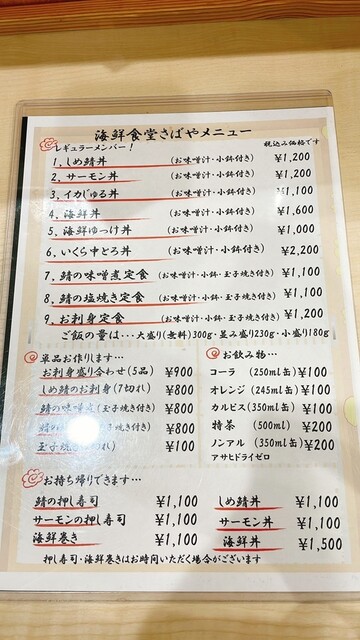 海鮮食堂さばやメニュー
レギュラーメンバー! 税込み価格です
1, しめ鯖丼 (お味噌汁・小鉢付き) ¥1,200
2, サーモン丼 (お味噌汁・小鉢付き) ¥1,200
3, イカじゅる丼 (お味噌汁・小鉢付き) ¥1,100
4, 海鮮丼 (お味噌汁・小鉢付き) ¥1,600
5, 海鮮ゆっけ丼 (お味噌汁・小鉢付き) ¥1,000
6, いくら中とろ丼 (お味噌汁・小鉢付き) ¥2,200
7, 鯖の味噌煮定食 (お味噌汁・小鉢・玉子焼き付き) ¥1,100
8, 鯖の塩焼き定食 (お味噌汁・小鉢・玉子焼き付き) ¥1,100
9, お刺身定食 (お味噌汁・小鉢・玉子焼き付き) ¥1,200
ご飯の量は…大盛り(無料)300g・並み盛り230g・小盛り180g
単品お作ります…
お刺身盛り合わせ(5品) ¥900
しめ鯖のお刺身(7切れ) ¥800
鯖の味噌煮(玉子焼き付き) ¥800
鯖の 焼き(玉子焼き付き) ¥800
玉子焼き れ) ¥100
お飲み物…
コーラ (250ml缶) ¥100
オレンジ (245ml缶) ¥100
カルピス(350ml缶) ¥100
特茶 (500ml) ¥200
ノンアル (350ml缶) ¥200
アサヒドライゼロ
お持ち帰りできます…
鯖の押し寿司 ¥1,100
サーモンの押し寿司 ¥1,100
海鮮巻き ¥1,100
しめ鯖丼 ¥1,100
サーモン丼 ¥1,100
海鮮丼 ¥1,500
押し寿司・海鮮巻きはお時間いただく場合がございます